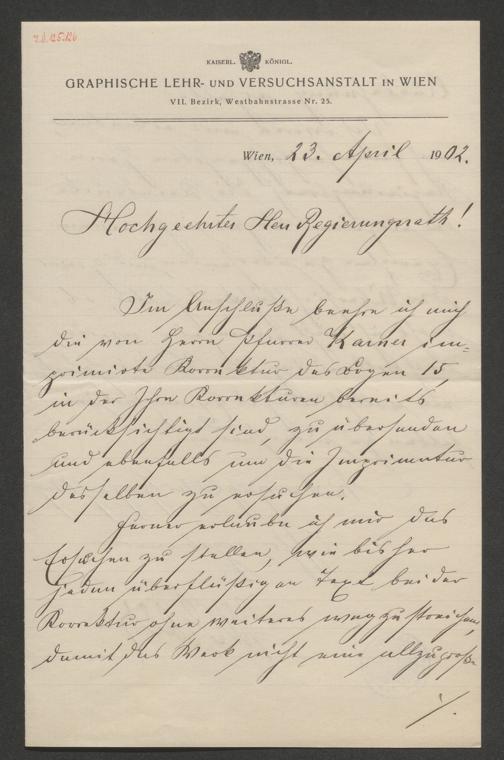 KAISERL. KÖNIGL.
GRAPHISCHE LEHR- UND VERSUCHSANSTALT IN WIEN
VII. Bezirk, Westbahnstrasse Nr. 25.
Wien, 23. April 1902.
Hochgeehrter Herr Regierungsrath!
Im Anschluße beehre ich mich
die von Herrn Pfarrer Karner im=
primirte Korrektur des Bogen 15,
in der Ihre Korrekturen bereits
berücksichtigt sind, zu übersenden
und ebenfalls um die Imprimatur
desselben zu ersuchen.
Ferner erlaube ich mir das
Ersuchen zu stellen, wie bisher
jeden überflüßigen Text bei der
Korrektur ohne weiteres wegzustreichen,
damit das Werk nicht eine allzugroße
./.